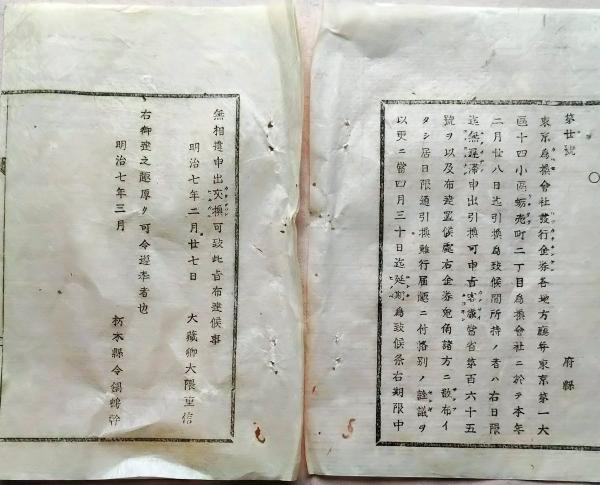 第廿號
府縣
東京爲換會社發行金券各地方廳幷東京第一大
區十四小區蛎売町二丁目爲換會社ニ於テ本年
二月廿八日迄引換爲致候間所持ノ者ハ右日限
迄無遲滯申出引換可申旨客歲當省第百六十五
號ヲ以及布達置候處右金券兌角諸方ニ散布イ
タシ居日限通引換難行届趣ニ付格別ノ詮議ヲ
以更ニ當四月三十日迄延期爲致候条右期限中
無相違申出交換可致此旨布達候事
明治七年二月廿七日
大藏卿大隈重信
右御達之趣厚ク可令遵奉者也
明治七年三月
栃木縣令鍋島幹